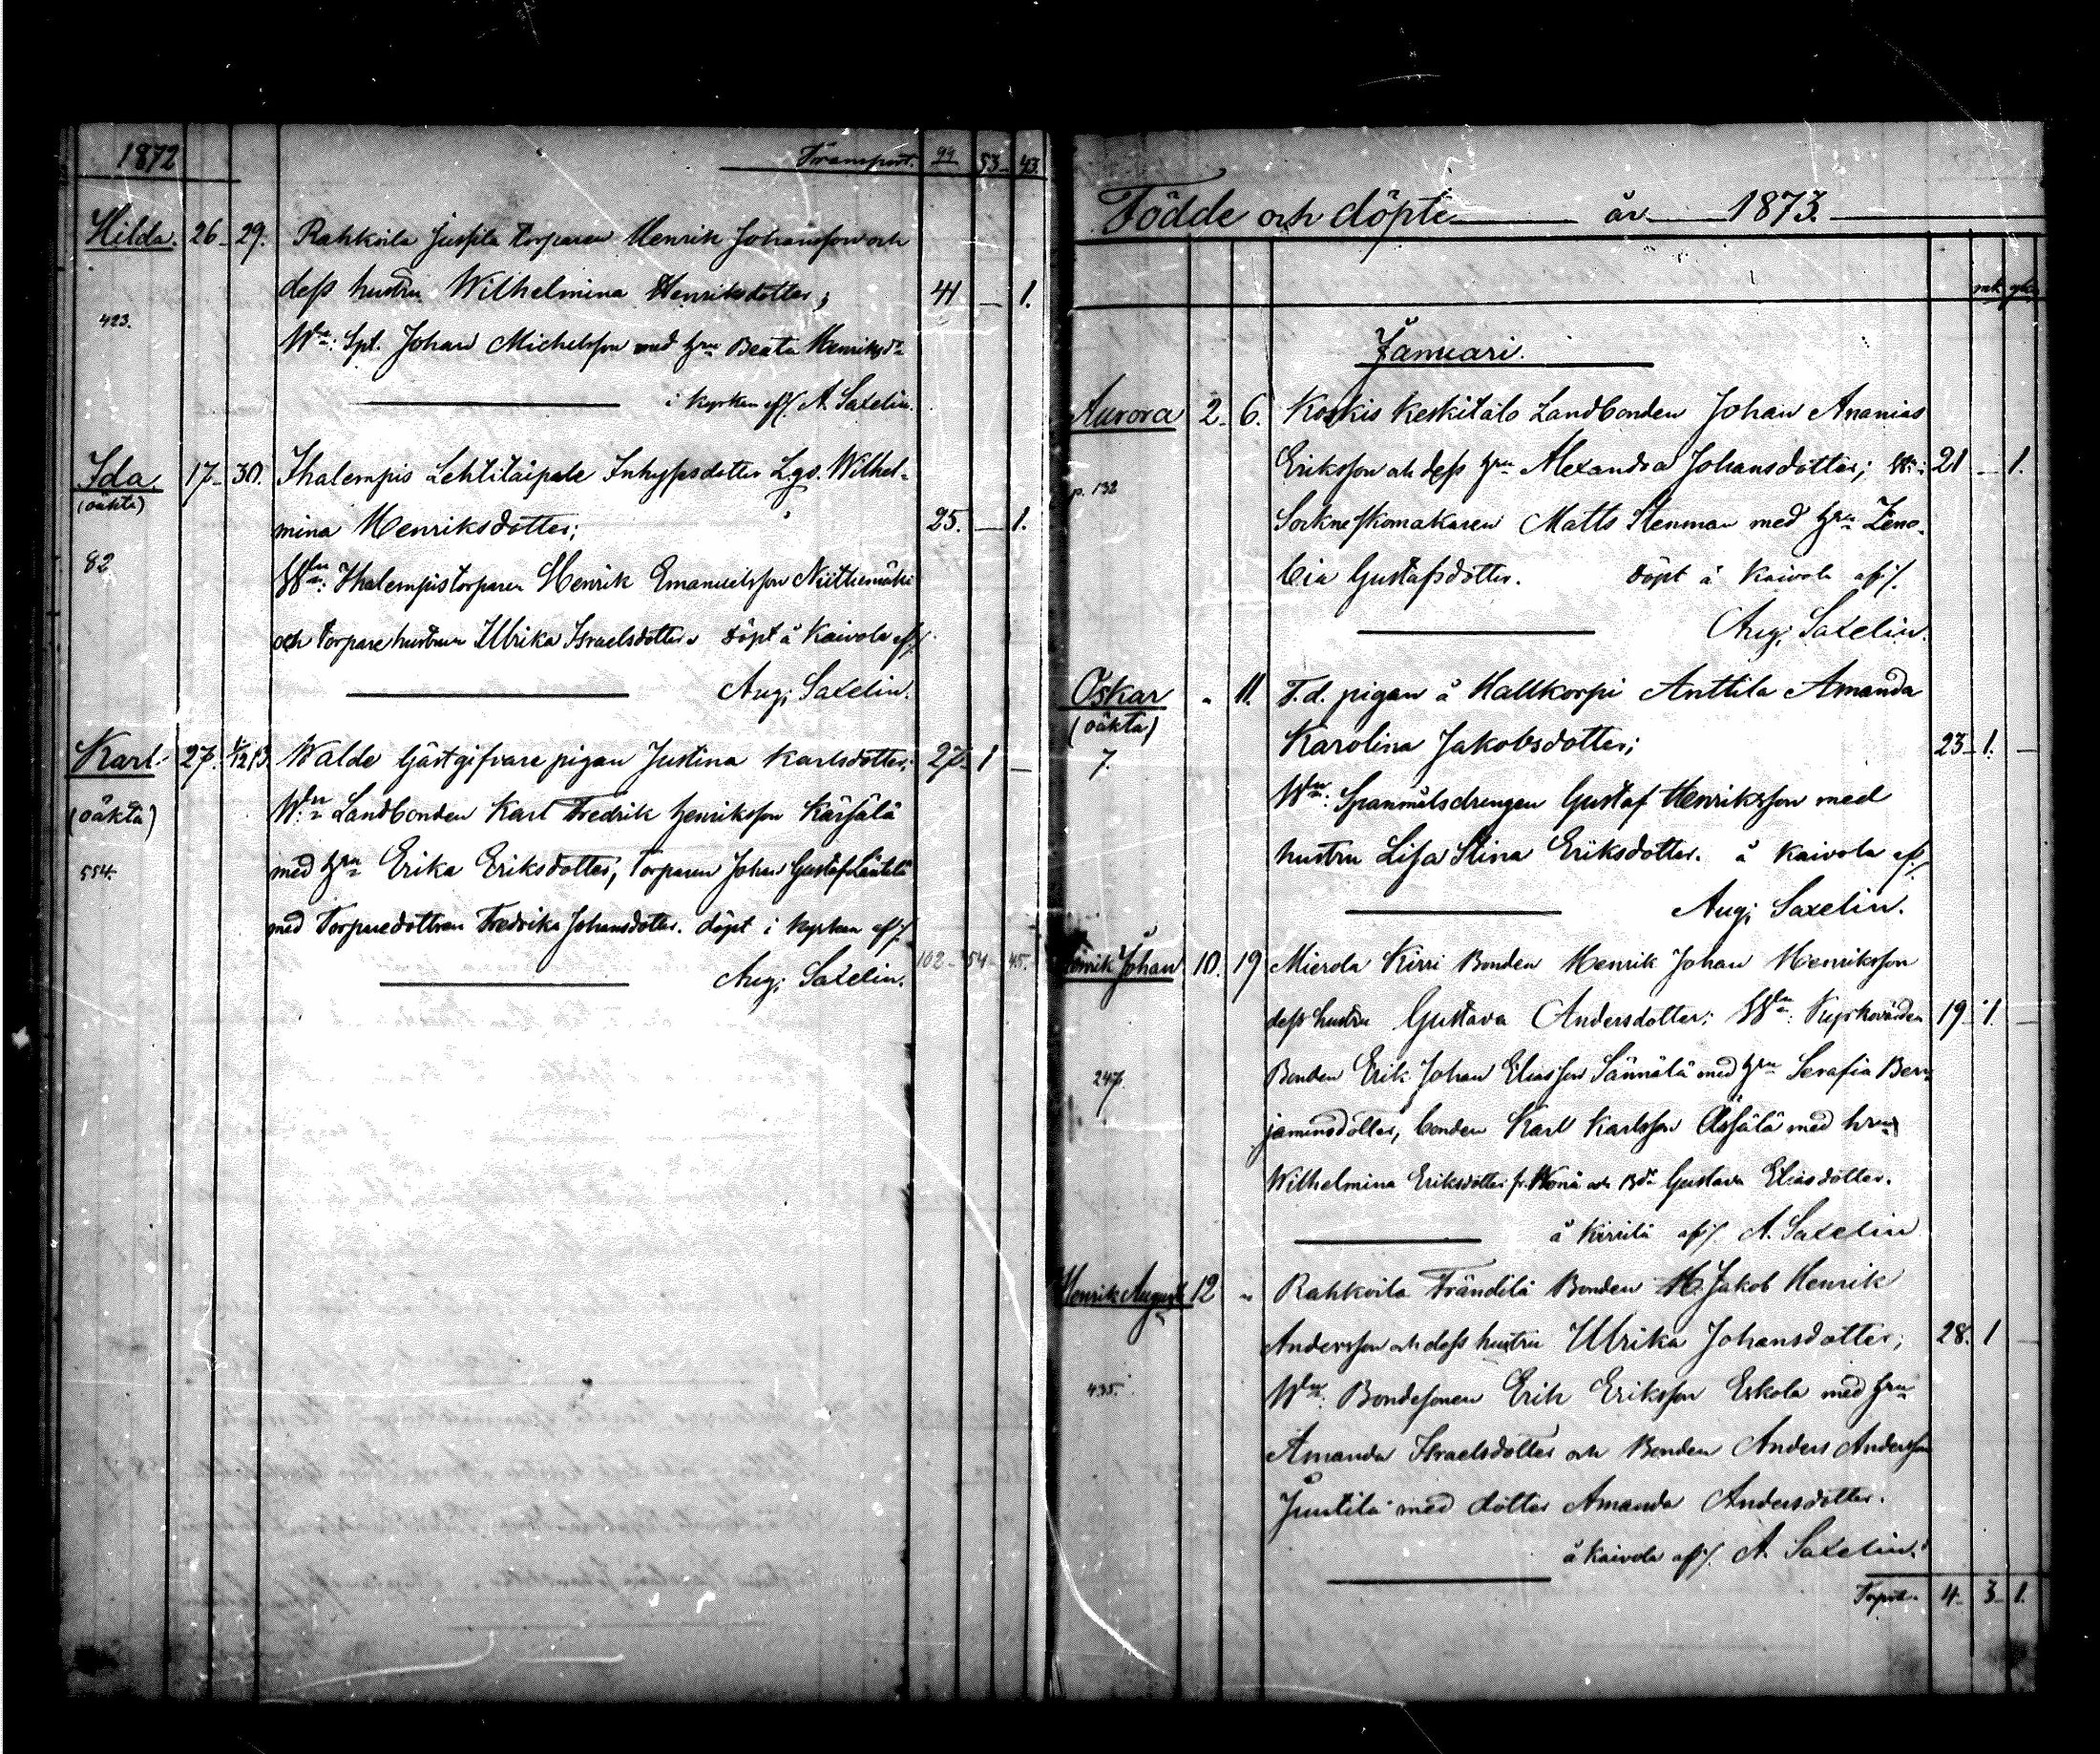 1872 Transport. 99 53 43.
Hilda. 26 29. Rahkoila Jussila torparen Henrik Johansson och
dess hustru Wilhelmina Henriksdotter; 41 — 1.
423.
Wn: Spl. Johan Michelsson med hru Beata Henriksdr
i kyrkan aff. A. Saxelin.
Ida 17 30. Ihalempis Lehtitaipale Inhysesdotter Lgs. Wilhel-
(oäkta)
mina Henriksdotter; 25. — 1.
82
Wn: Ihalempis torparen Henrik Emanuelsson Niittumäki
och torparehustrun Ulrika Israelsdotter döpt å Kaivola af/.
Aug; Saxelin.
Karl 27. 1/12 13. Walde Gästgifvare pigan Justina Karlsdotter; 27 1 —
(oäkta)
Wn Landbonden Karl Fredrik Henriksson Kärsälä
554.
med hru Erika Eriksdotter, Torparen Johan Gustaf
med Torparedottren Fredrika Johansdotter. döpt i kyrkan af/.
Aug; Saxelin. 102 54 45.
Födde och döpte — år — 1873. —
Januari.
Aurora 2. 6. Koskis Keskitalo Landbonden Johan Ananias
Eriksson och dess hru Alexandra Johansdotter; Wn: 21 — 1.
p. 132
Sockneskomakaren Matts Stenman med hru Zeno-
bia Gustafsdotter. döpt å Kaivola af/.
Aug; Saxelin.
Oskar " 11. F.d. pigan å Hallkorpi Anttila Amanda
(oäkta)
Karolina Jakobsdotter; 23 1. —
7.
Wn: Spanmålsdrengen Gustaf Henriksson med
hustru Lisa Stina Eriksdotter. å Kaivola af/.
Aug; Saxelin.
Henrik Johan 10. 19 Mierola Kirri Bonden Henrik Johan Henriksson
dess hustru Gustava Andersdotter; Wn: Kyrkovärden 19 1. —
247.
Bonden Erik Johan Eliasson Sännälä med hru Serafia Ben-
jaminsdotter, bonden Karl Karlsson med hru
Wilhelmina Eriksdotter och Gustava Eliasdotter.
å Kirrilä af/. A. Saxelin
Henrik August 12 " Rahkoila Frändilä Bonden Jakob Henrik
Andersson och dess hustru Ulrika Johansdotter; 28. 1 —
435.
Wn: Bondesonen Erik Eriksson Eskola med hru
Amanda Israelsdotter och Bonden Anders Andersson
Juutila med dotter Amanda Andersdotter.
å Kaivola af/. A. Saxelin.
Tspt. 4 3 1.